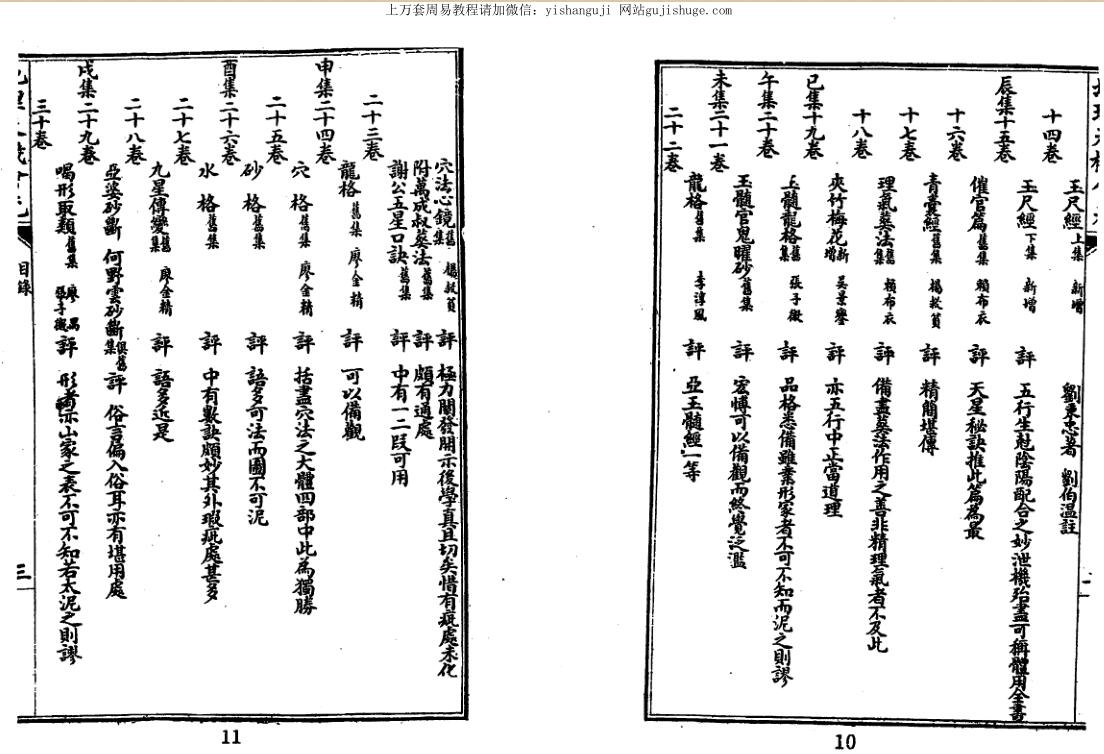 上万套周易教程请加微信：yishanguji 网站gujishuge.com
十四卷 玉尺經上集 新增 劉秉忠著 劉伯溫註
玉尺經下集 新增 評 五行生尅陰陽配合之妙泄機殆盡可稱體用全書
辰集十五卷 催官篇舊集 賴布衣 評 天星秘訣推此篇為最
十六卷 青囊經舊集 楊救貧 評 精簡堪傳
十七卷 理氣葬法舊集 賴布衣 評 備盡葬法作用之善非精理氣者不及此
十八卷 夾竹梅花新增 吳景鸞 評 亦五行中正當道理
巳集十九卷 玉髓龍格舊集 張子微 評 品格悉備雖業形家者不可不知而泥之則謬
午集二十卷 玉髓官鬼曜砂舊集 評 宏博可以備觀而終覺泛濫
未集二十一卷 龍格舊集 李淳風 評 亞玉髓經一等
二十二卷
10
穴法心鏡舊集 楊救貧 評 極力闡發開示後學真且切矣惜有疵處未化
附萬成叔葬法舊集 評 頗有通處
二十三卷 謝公五星口訣舊集 評 中有一二段可用
申集二十四卷 龍格舊集 廖金精 評 可以備觀
二十五卷 穴格舊集 廖金精 評 括盡穴法之大體四部中此為獨勝
酉集二十六卷 砂格舊集 評 語多可法而圖不可泥
二十七卷 水格舊集 評 中有數訣頗妙其外瑕疵處甚多
二十八卷 九星傳變舊集 廖金精 評 語多近是
戌集二十九卷 亞婆砂斷 何野雲砂斷俱舊集 評 俗言偏入俗耳亦有堪用處
三十卷 喝形取類舊集 廖禹 張子微 評 形者亦山家之表不可不知若太泥之則謬
目錄
三
11